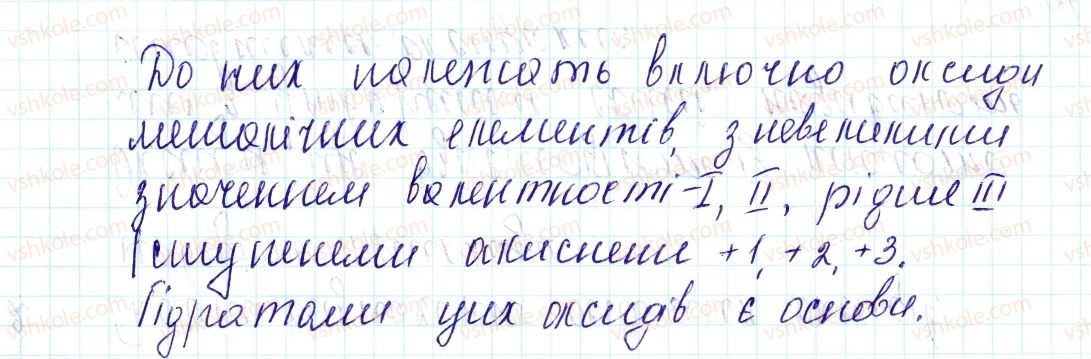 До них належать включно оксиди
металічних елементів, з невеликим
значенням валентності - I, II, рідше III
ступенями окиснення +1, +2, +3.
Гідратами цих оксидів є основи.